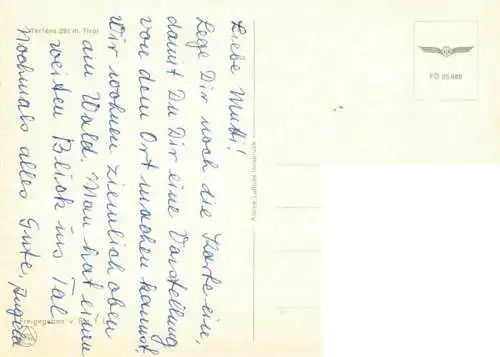 Wertens 982 m. Tirol
Liebe Mutti!
Lege Dir noch die Karte ein,
damit Du Dir eine Vorstellung
von dem Ort machen kannst.
Wir wohnen ziemlich oben
am Wald. Man hat einen
weiten Blick ins Tal
Nochmals alles Gute,
FÖ 25 989
Freigegeben v.